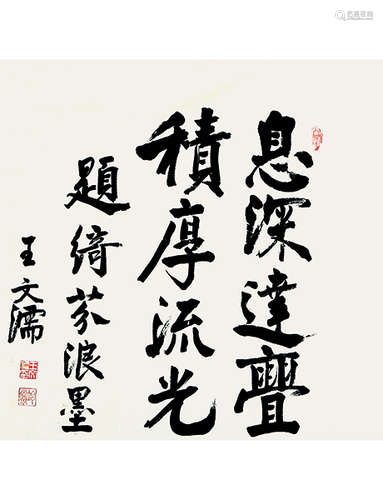 息深達亹
積厚流光
題綺芬浪墨
王文濡